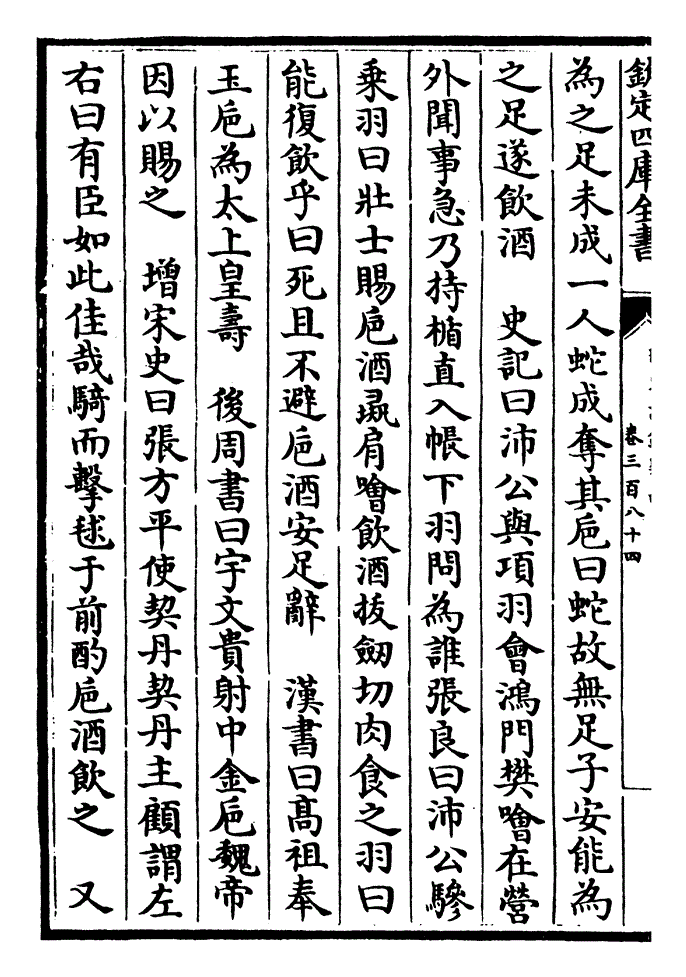 欽定四庫全書
卷三百八十四
為之足未成一人蛇成奪其卮曰蛇故無足子安能為
之足遂飲酒　史記曰沛公與項羽會鴻門樊噲在營
外聞事急乃持楯直入帳下羽問為誰張良曰沛公驂
乘羽曰壯士賜卮酒彘肩噲飲酒拔劒切肉食之羽曰
能復飲乎曰死且不避卮酒安足辭　漢書曰髙祖奉
玉卮為太上皇壽　後周書曰宇文貴射中金卮魏帝
因以賜之　增宋史曰張方平使契丹契丹主顧謂左
右曰有臣如此佳哉騎而擊毬于前酌卮酒飲之　又